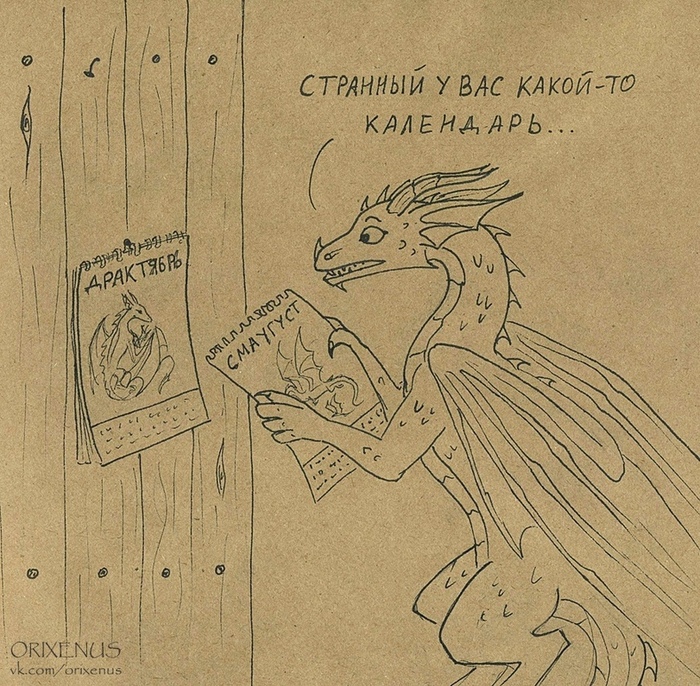 СТРАННЫЙ У ВАС КАКОЙ-ТО
КАЛЕНДАРЬ...
ДРАКТЯБРЬ
СМАУГУСТ
ORIXENUS
vk.com/orixenus